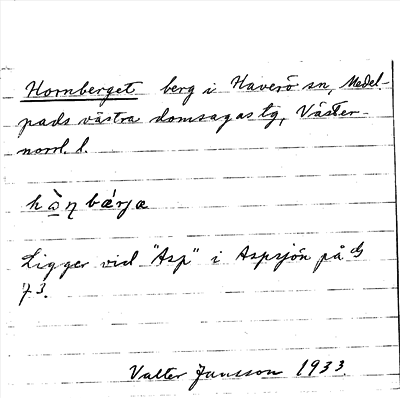 Hornberget berg i Haverö sn, Medel-
pads västra domsagas tg, Väster-
norrl. l.
Ligger vid "Asp" i Aspsjön på G
73.
Valter Jansson 1933.